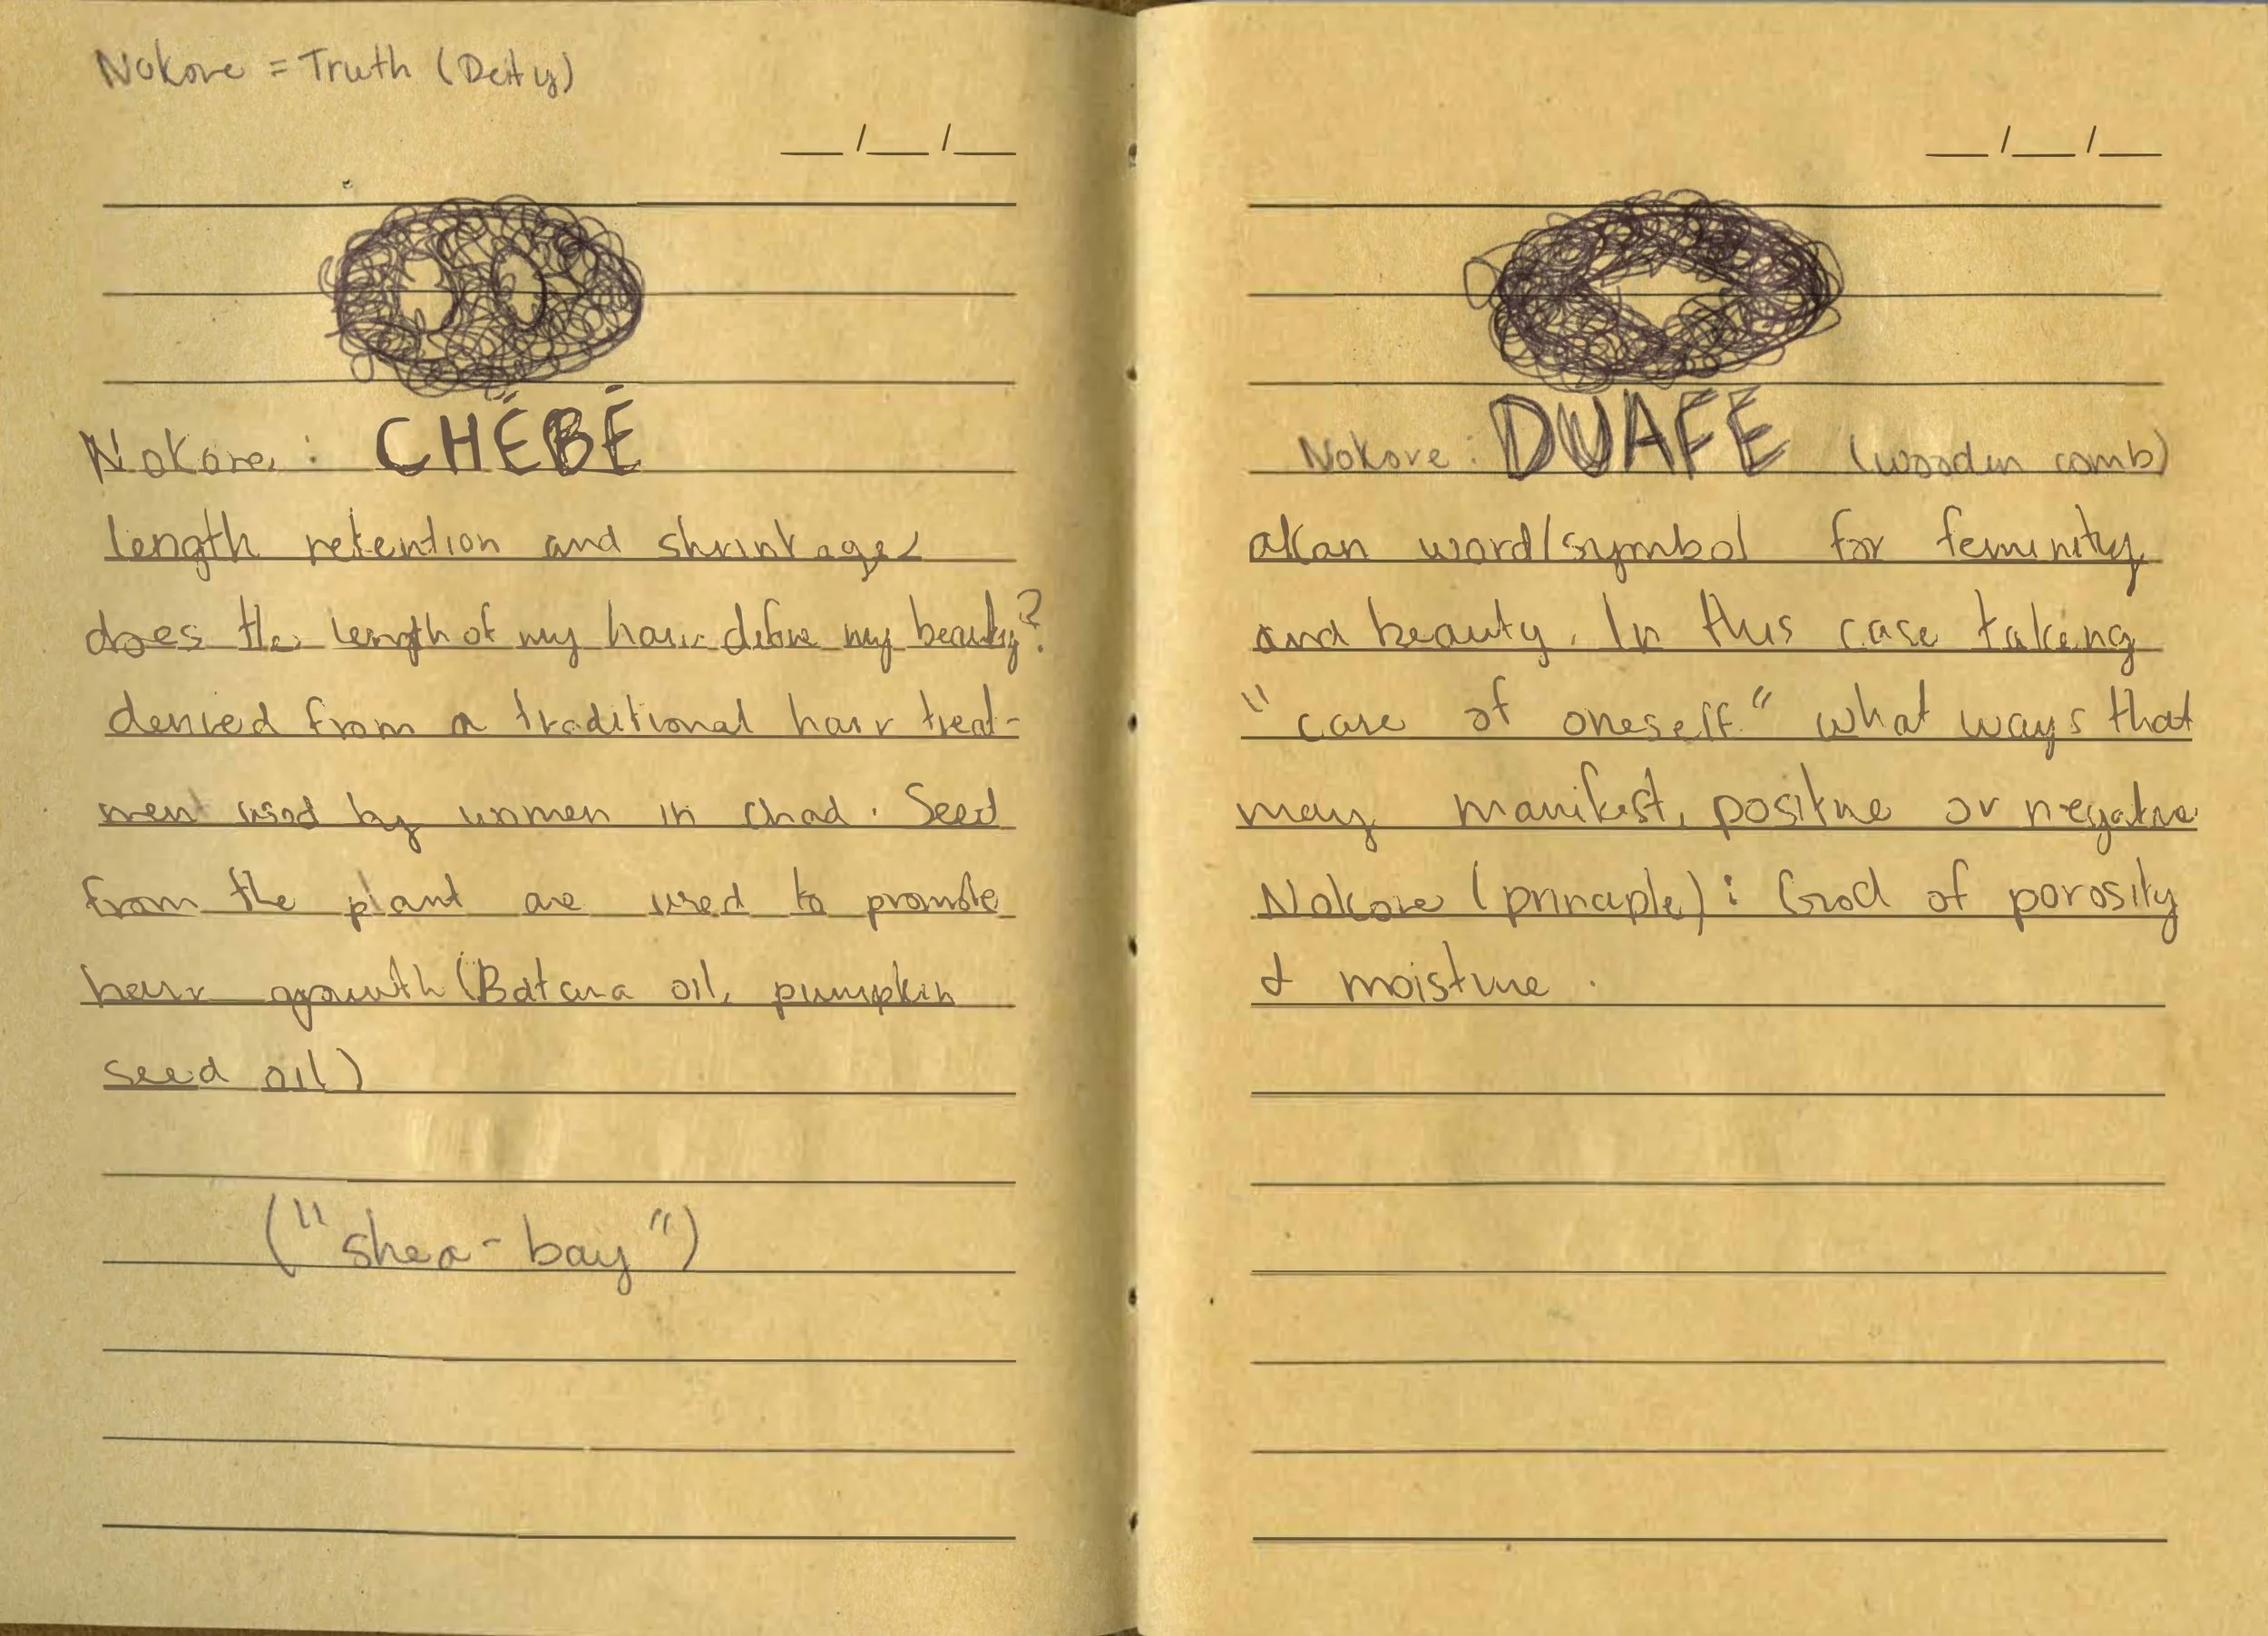 Nokore = Truth (Deity)
__/__/__
Nokore : CHÉBÉ
length retention and shrinkage
does the length of my hair define my beauty?
deried from a traditional hair treat-
ment used by women in Chad. Seed
from the plant are used to promote
hair growth (Batana oil, pumpkin
seed oil)
("shea-bay")
__/__/__
Nokore : DUAFE (wooden comb)
akan word/symbol for feminity
and beauty. In this case taking
"care of oneself" what ways that
may manifest, positive or negative
Nokore (principle) : God of porosity
& moisture.